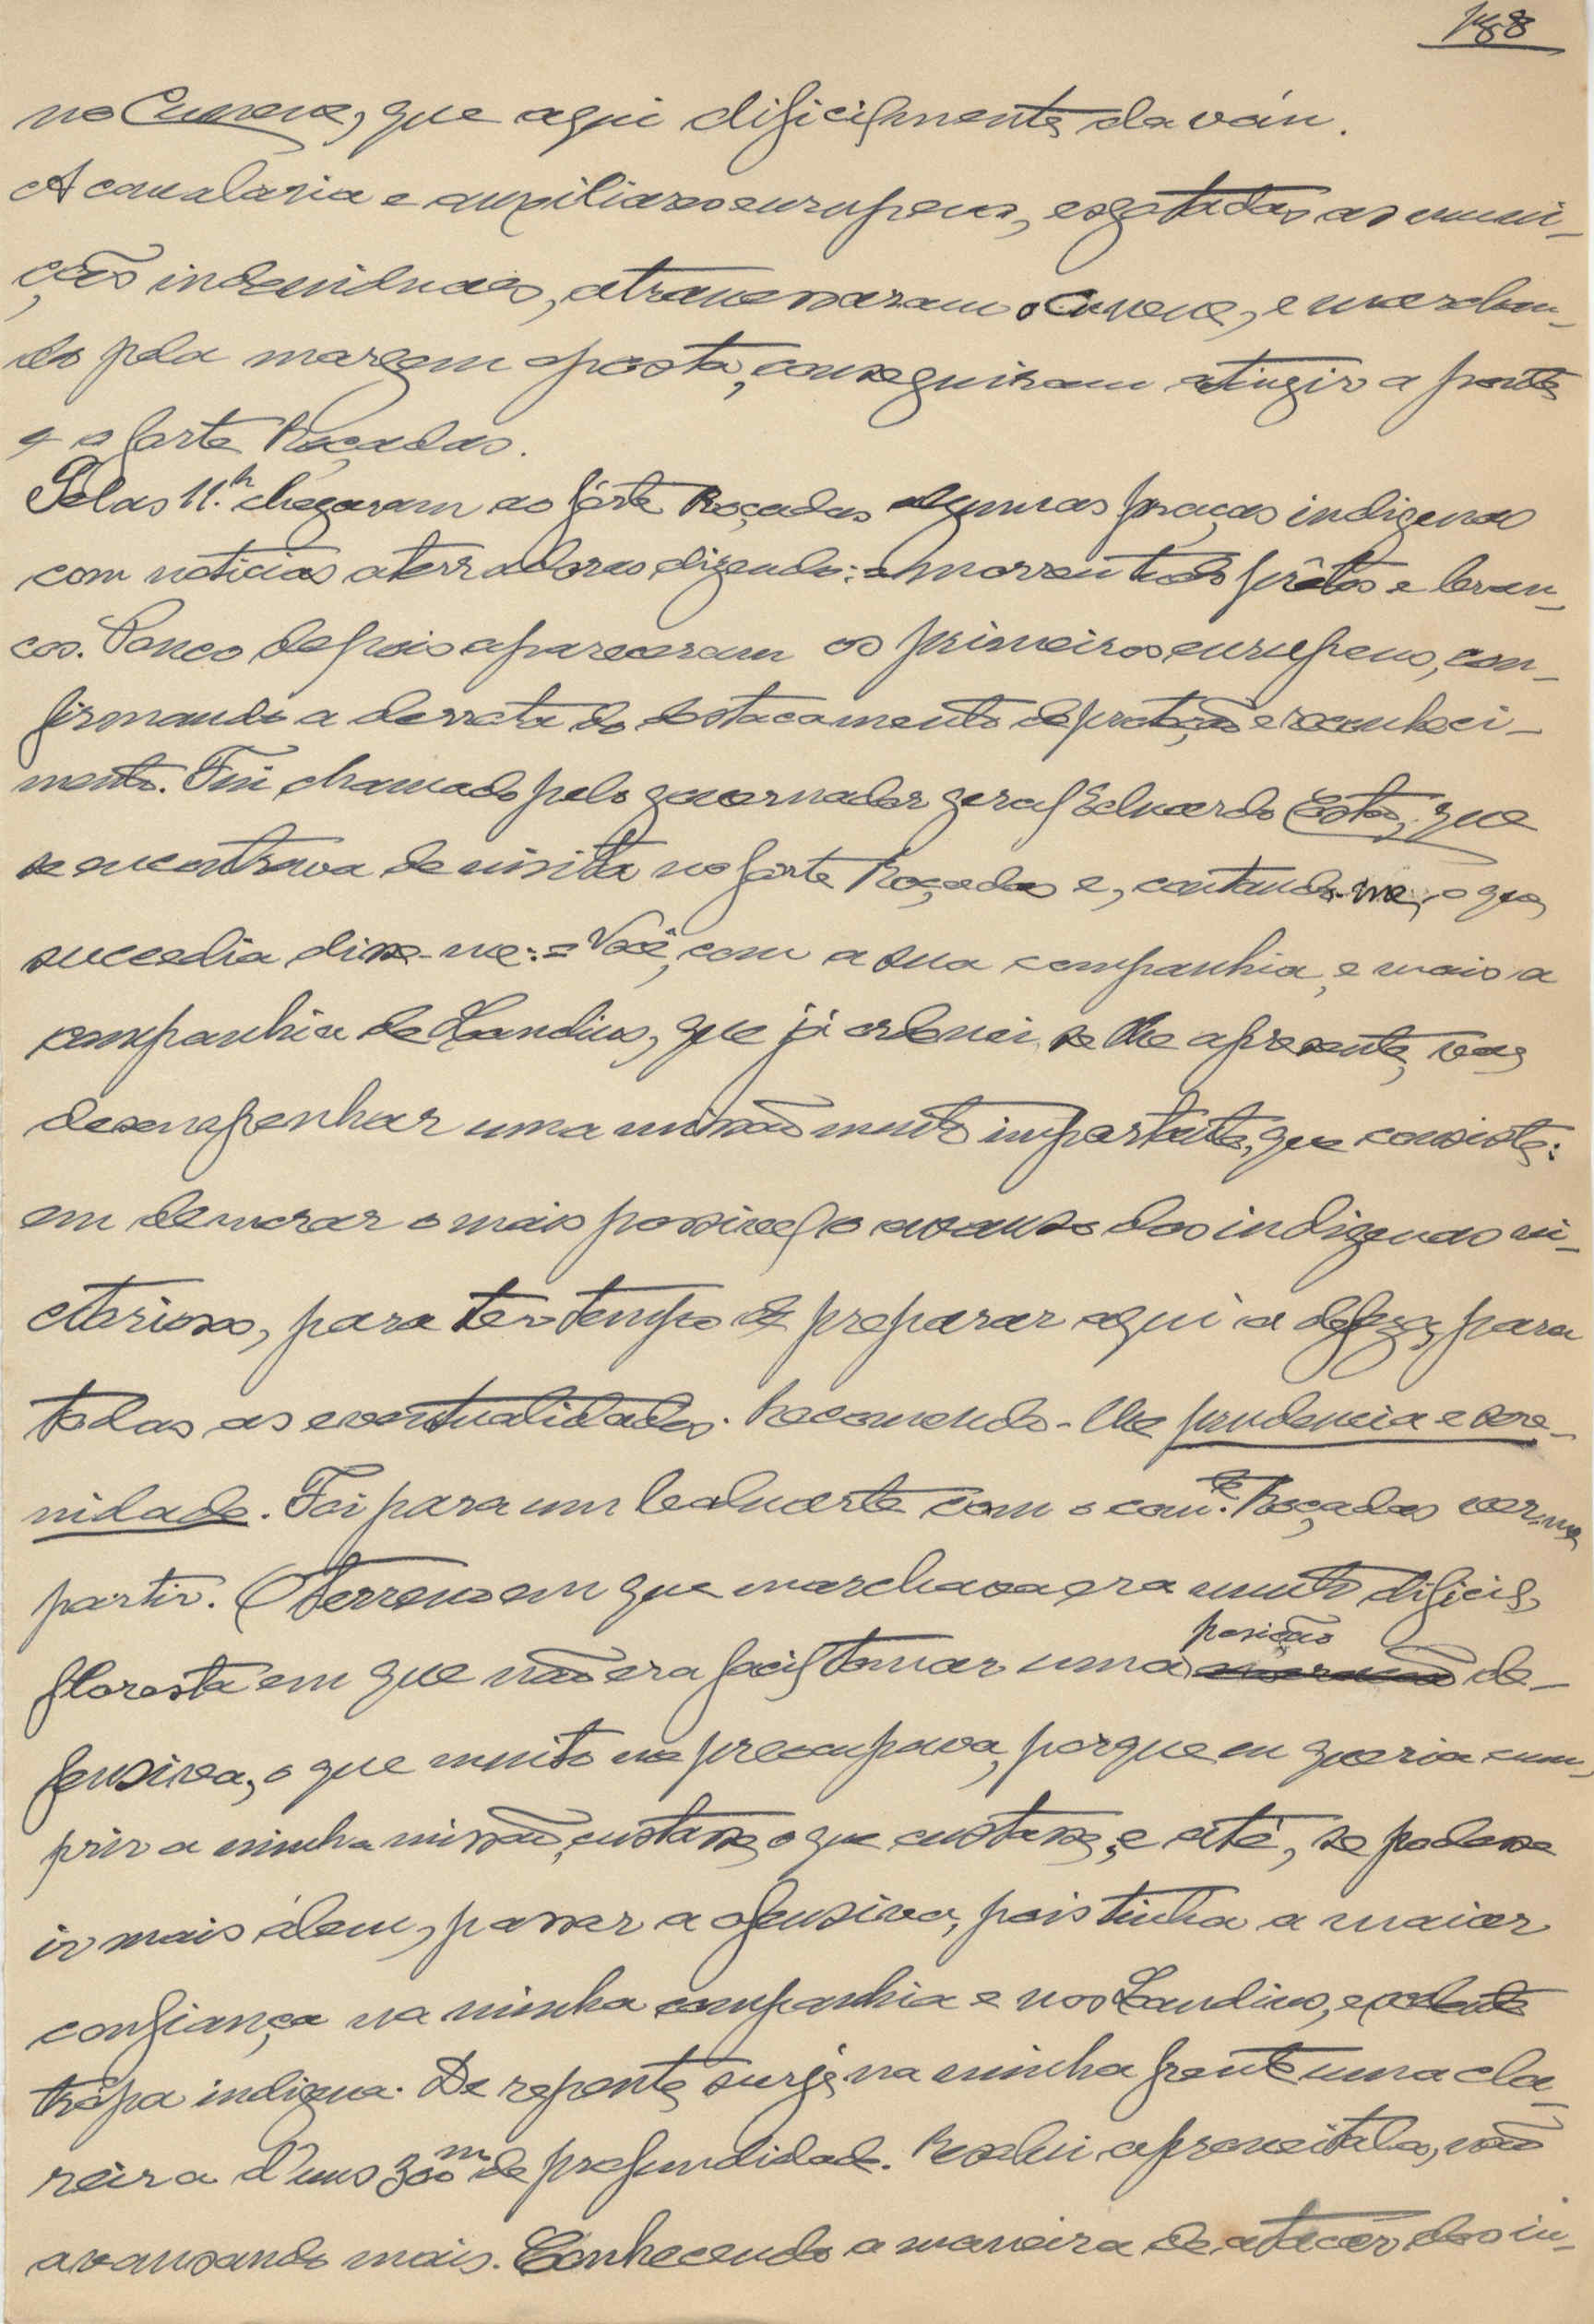 188
no Cunene, que aqui dificilmente da váu.
A cavalaria e auxiliares europeus, esgotadas as muni-
ções individuaes, atravessaram o Cunene, e marchan-
do pela margem oposta, conseguiram atingir a ponte
e o forte Roçadas.
Pelas 11.h chegavam ao fórte Roçadas algumas praças indigenas
com noticias aterradoras dizendo:= morreu tudo prêtos e bran-
cos. Pouco depois apareceram os primeiros europeus, con-
firmando a derrota do destacamento de proteção e reconheci-
mento. Fui chamado pelo governador geral Eduardo Costa, que
se encontrava de visita no forte Roçadas e, contando-me, o que
succedia disse-me:= Você, com a sua companhia, e mais a
companhia de Landins, que já ordenei se lhe apresente, vae
desempenhar uma missão muito importante, que consiste:
em demorar o mais possivel o avanso dos indigenas vi-
ctoriosos, para ter tempo de preparar aqui a defeza, para
todas as eventualidades. Recomendo-lhe prudencia e sere-
nidade. Foi para um baluarte com o com.te Roçadas ver-me
partir. O terreno em que marchava era muito dificil,
floresta em que não era facil tomar uma posição de-
fensiva, o que muito me preocupava, porque eu queria cum-
prir a minha missão, custasse o que custasse, e até, se podesse
ir mais álem, passar a ofensiva, pois tinha a maior
confiança na minha companhia e nos Landins, excelente
trópa indigena. De repente, surge na minha frente uma cla-
reira d'uns 300m de profundidade. Resolvi aproveita-la, não
avansando mais. Conhecendo a maneira de atacar dos in-